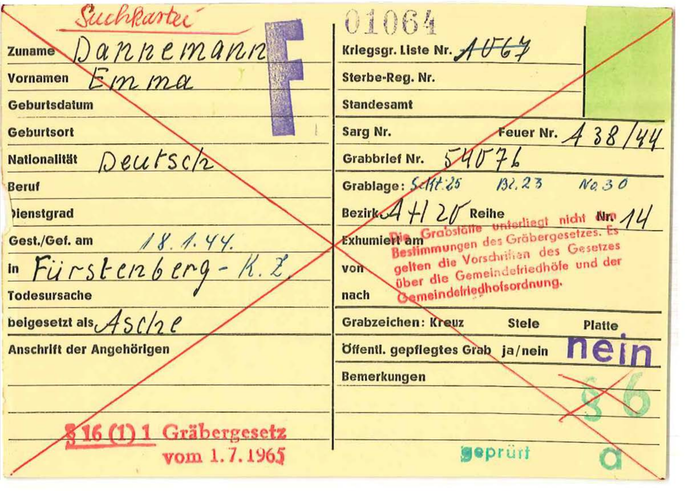 Suchkartei
Zuname Dannemann
Vornamen Emma
Geburtsdatum
Geburtsort
Nationalität Deutsch
Beruf
Dienstgrad
Gest./Gef. am 18.1.44.
in Fürstenberg - K.Z.
Todesursache
beigesetzt als Asche
Anschrift der Angehörigen
§ 16 (1) 1 Gräbergesetz
vom 1.7.1965
F
01064
Kriegsgr. Liste Nr. A067
Sterbe-Reg. Nr.
Standesamt
Sarg Nr. Feuer Nr. A 38/44
Grabbrief Nr. 54076
Grablage: Bl. 23 No. 30
Bezirk AH 20 Reihe Nr. 14
Die Grabstätte unterliegt nicht den
Bestimmungen des Gräbergesetzes. Es
gelten die Vorschriften des Gesetzes
über die Gemeindefriedhöfe und der
Gemeindefriedhofsordnung.
Exhumiert am
von
nach
Grabzeichen: Kreuz Stele Platte
Öffentl. gepflegtes Grab ja/nein nein
Bemerkungen
§ 6
geprüft a